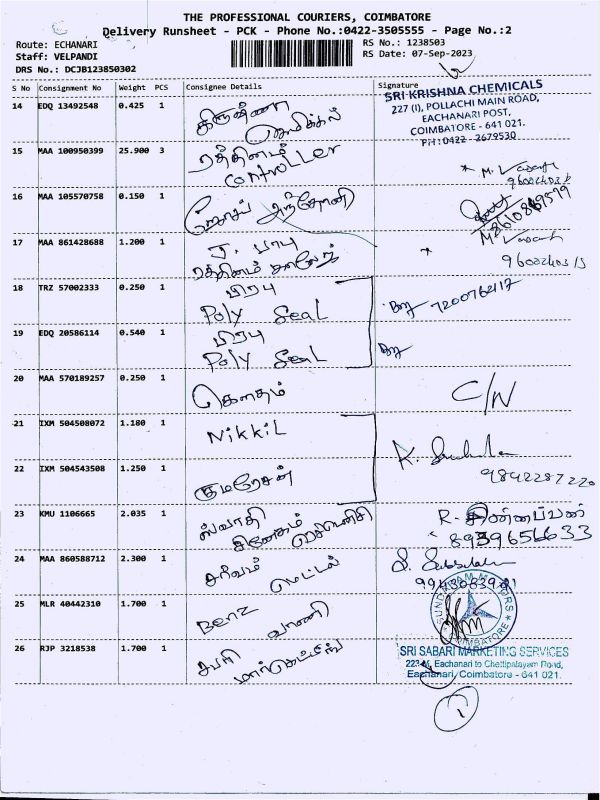 THE PROFESSIONAL COURIERS, COIMBATORE
Delivery Runsheet - PCK - Phone No.:0422-3505555 - Page No.:2
Route: ECHANARI
RS No.: 1238503
Staff: VELPANDI
RS Date: 07-Sep-2023
DRS No.: DCJB123850302
S No Consignment No Weight PCS Consignee Details Signature
SRI KRISHNA CHEMICALS
227 (I), POLLACHI MAIN ROAD,
EACHANARI POST,
COIMBATORE - 641 021.
PH: 0422 - 2679530
14 EDQ 13492548 0.425 1 கிருஷ்ணா
கெமிக்கல்
15 MAA 100950399 25.900 3 ரத்தினம்
Controller
16 MAA 105570758 0.150 1 ஜோசப் அந்தோணி
17 MAA 861428688 1.200 1 ர. பாபு
ரத்தினம் காலேஜ்
18 TRZ 57002333 0.250 1 பிரபு
Poly Seal
7200762117
19 EDQ 20586114 0.540 1 பிரபு
Poly Seal
20 MAA 570189257 0.250 1 கௌதம் C/N
21 IXM 504508072 1.180 1 Nikkil
22 IXM 504543508 1.250 1 குமரேசன்
9842287220
23 KMU 1106665 2.035 1 ஸ்வாதி
R. சின்னப்பன்
8939656633
24 MAA 860588712 2.300 1 சரிவம்
மெட்டல்
SUNDARAM MOTORS
COIMBATORE
25 MLR 40442310 1.700 1 Benz
வாணி
26 RJP 3218538 1.700 1 சபரி
மார்கெட்டிங்
SRI SABARI MARKETING SERVICES
Eachanari to Chettipalayam Road,
Eachanari, Coimbatore - 641 021.
1